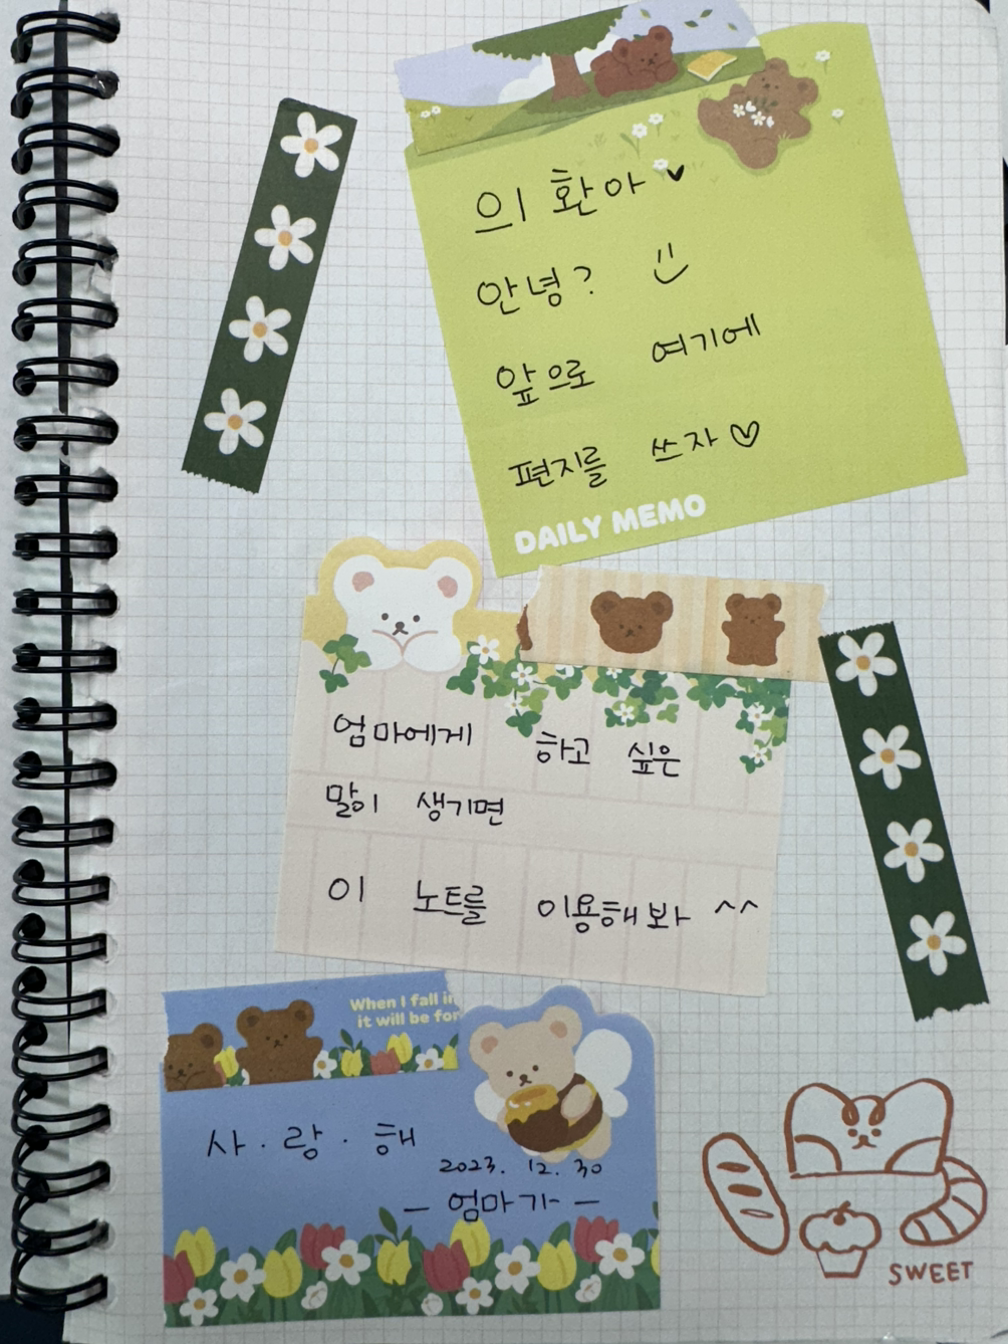 의환아
안녕?
앞으로 여기에
편지를 쓰자♡
DAILY MEMO
엄마에게 하고 싶은
말이 생기면
이 노트를 이용해봐 ^^
When I fall in
it will be for
사·랑·해
2023. 12. 30
- 엄마가 -
SWEET